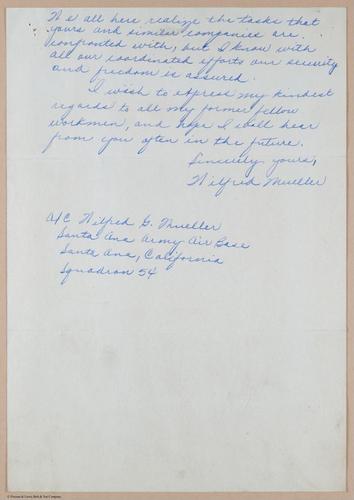 We all here realize the tasks that
yours and similar companies are
confronted with, but I know with
all our coordinated efforts our security
and freedom is assured.
I wish to express my kindest
regards to all my former fellow
workmen, and hope I will hear
from you often in the future.
Sincerely yours,
Wilfred Mueller
A/C Wilfred G. Mueller
Santa Ana Army Air Base
Santa Ana, California
Squadron 54